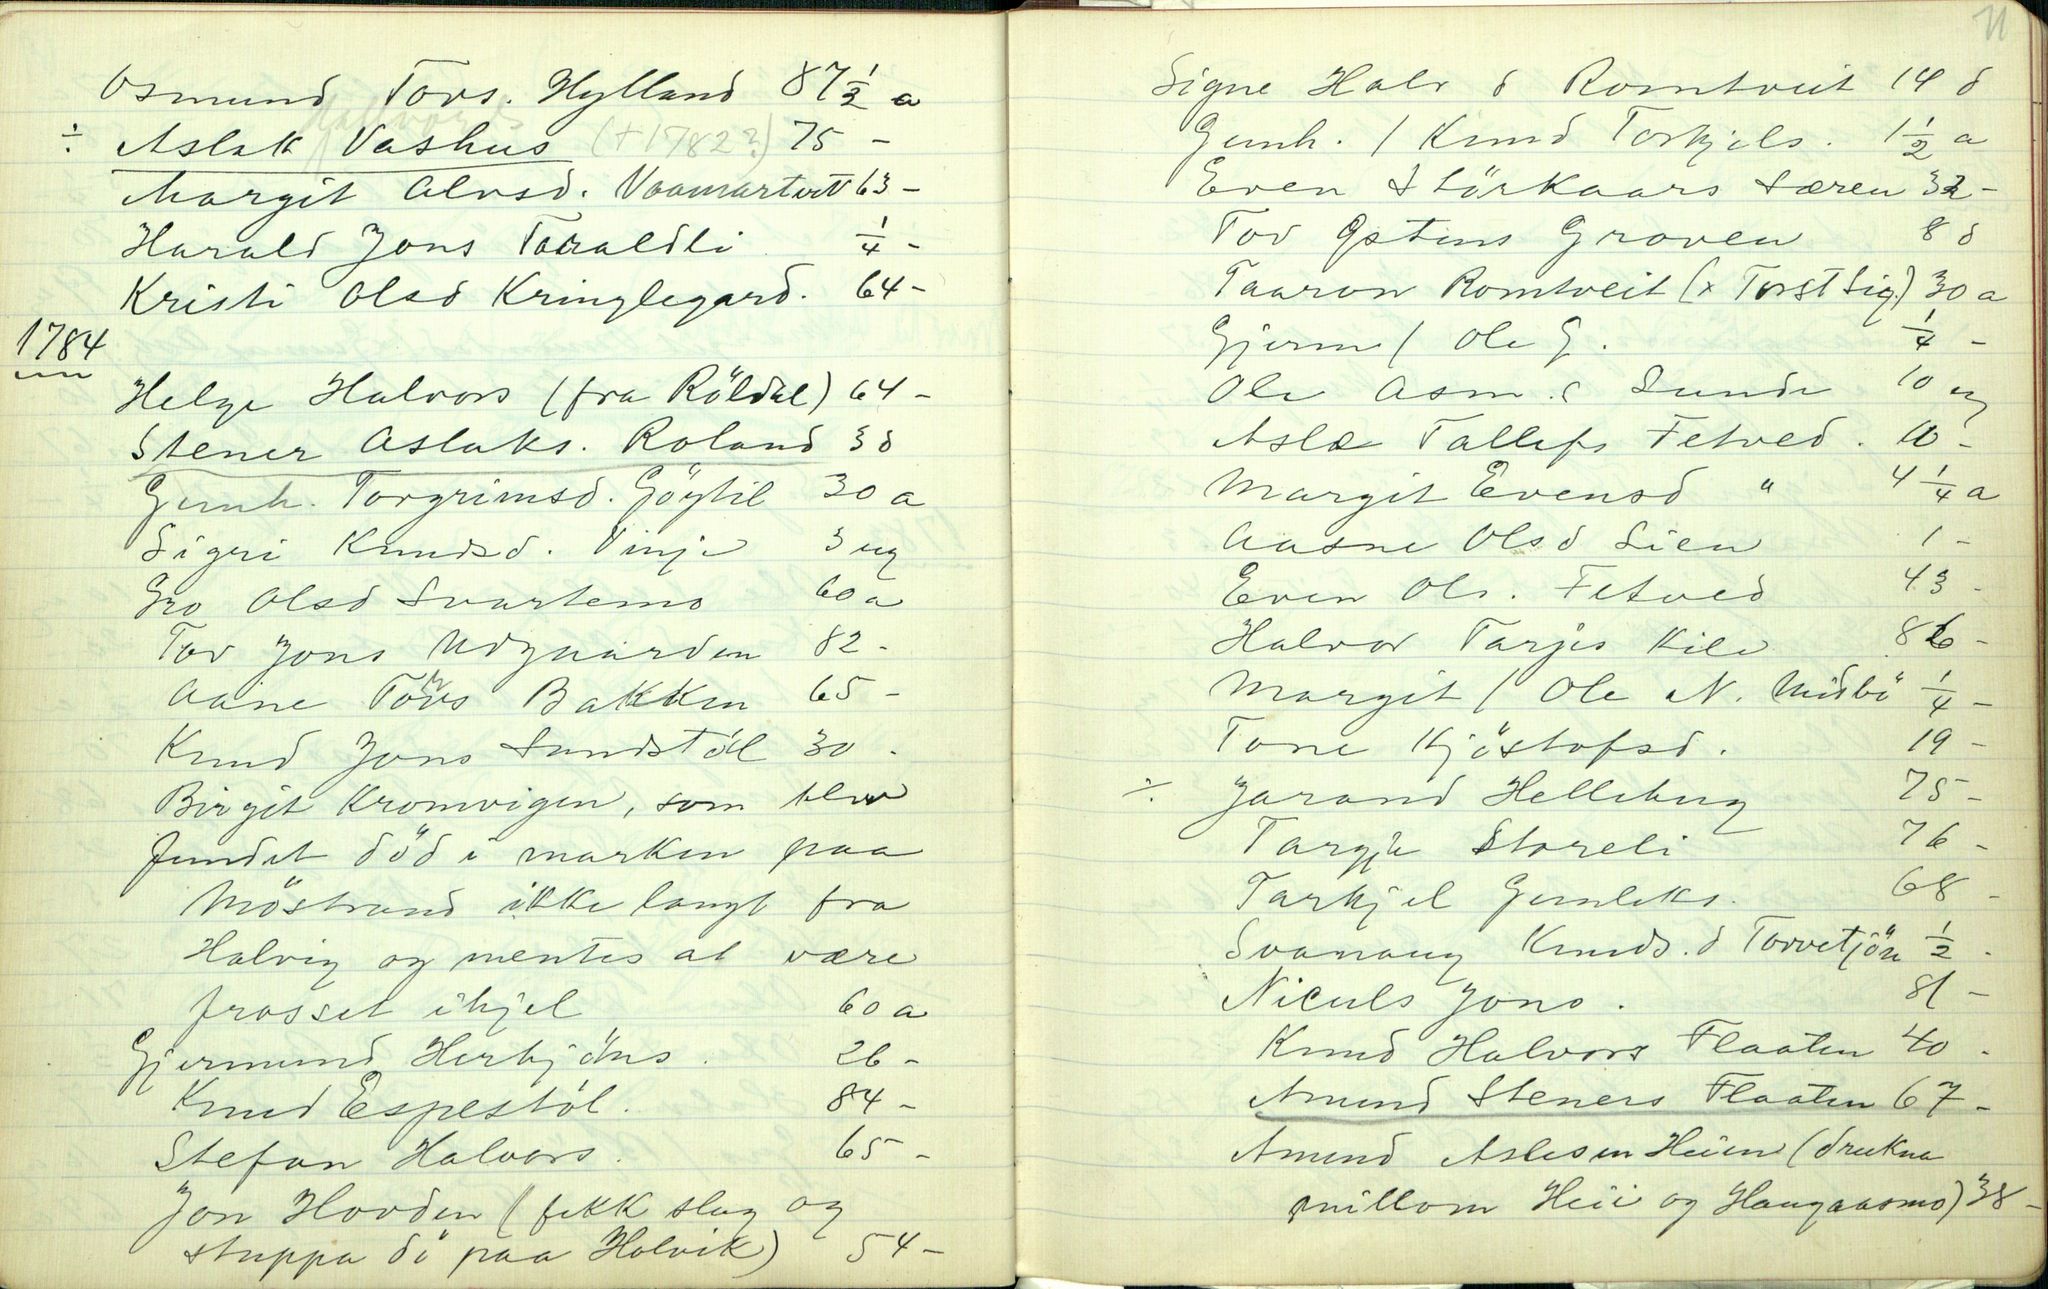 Osmund Tovs. Hylland 87 1/2 a
Halvorss
÷ Aslak Vashus (+1782?) 75 -
Margit Alvsd. Vaamartveit 63 -
Harald Jons Taraldli 1/4 -
Kristi Olsd Kringlegard. 64 -
1784
Helge Halvors (fra Röldal) 64 -
Stener Aslaks. Roland 3 d
Gunh. Torgrimsd. Göytil 30 a
Sigri Knudsd. Vinje 3 ug
Gro Olsd Svartemo 60 a
Tov Jons Udgaarden 82 -
Aane Tovs Bakken 65 -
Knud Jons Sundstöl 30 -
Birgit Kromvigen, som blev
fundet död i marken paa
Möstrand ikke langt fra
Halvig og mentes at være
frosset ihjel 60 a
Gjermund Herbjöns. 26 -
Knud Espestöl. 84 -
Stefan Halvors. 65 -
Jon Hovden (fekk slag og
stuppa dö paa Holvik) 54 -
11
Signe Halv d Romtveit 14 d
Gunh. / Knud Torkjels. 1 1/2 a
Even Störkaars Særen 32 -
Tov Östens Groven 8 d
Taaron Romtveit (x Torst Sig.) 30 a
Gjerm / Ole G. 1/4 -
Ole Asm. s Sunde 10 ug
Asla Tallefs Fetved. 10 -
Margit Evensd " 4 1/4 a
Aasne Olsd Lien 1 -
Even Ols. Fetved 43 -
Halvor Tarjes Kile 86 -
Margit / Ole N. Midbö 1/4 -
Tone Kjöstofsd. 19 -
÷ Jarand Helleberg 75 -
Targje Storeli 76 -
Tarkjel Gunleks. 68 -
Svanaug Knuds. d Torvetjön 1/2 -
Niculs Jons. 81 -
Knud Halvors Flaaten 40 -
Amund Steners Flaaten 67 -
Amund Aslesen Heien (drukna
millom Heii og Haugaasmo) 38 -